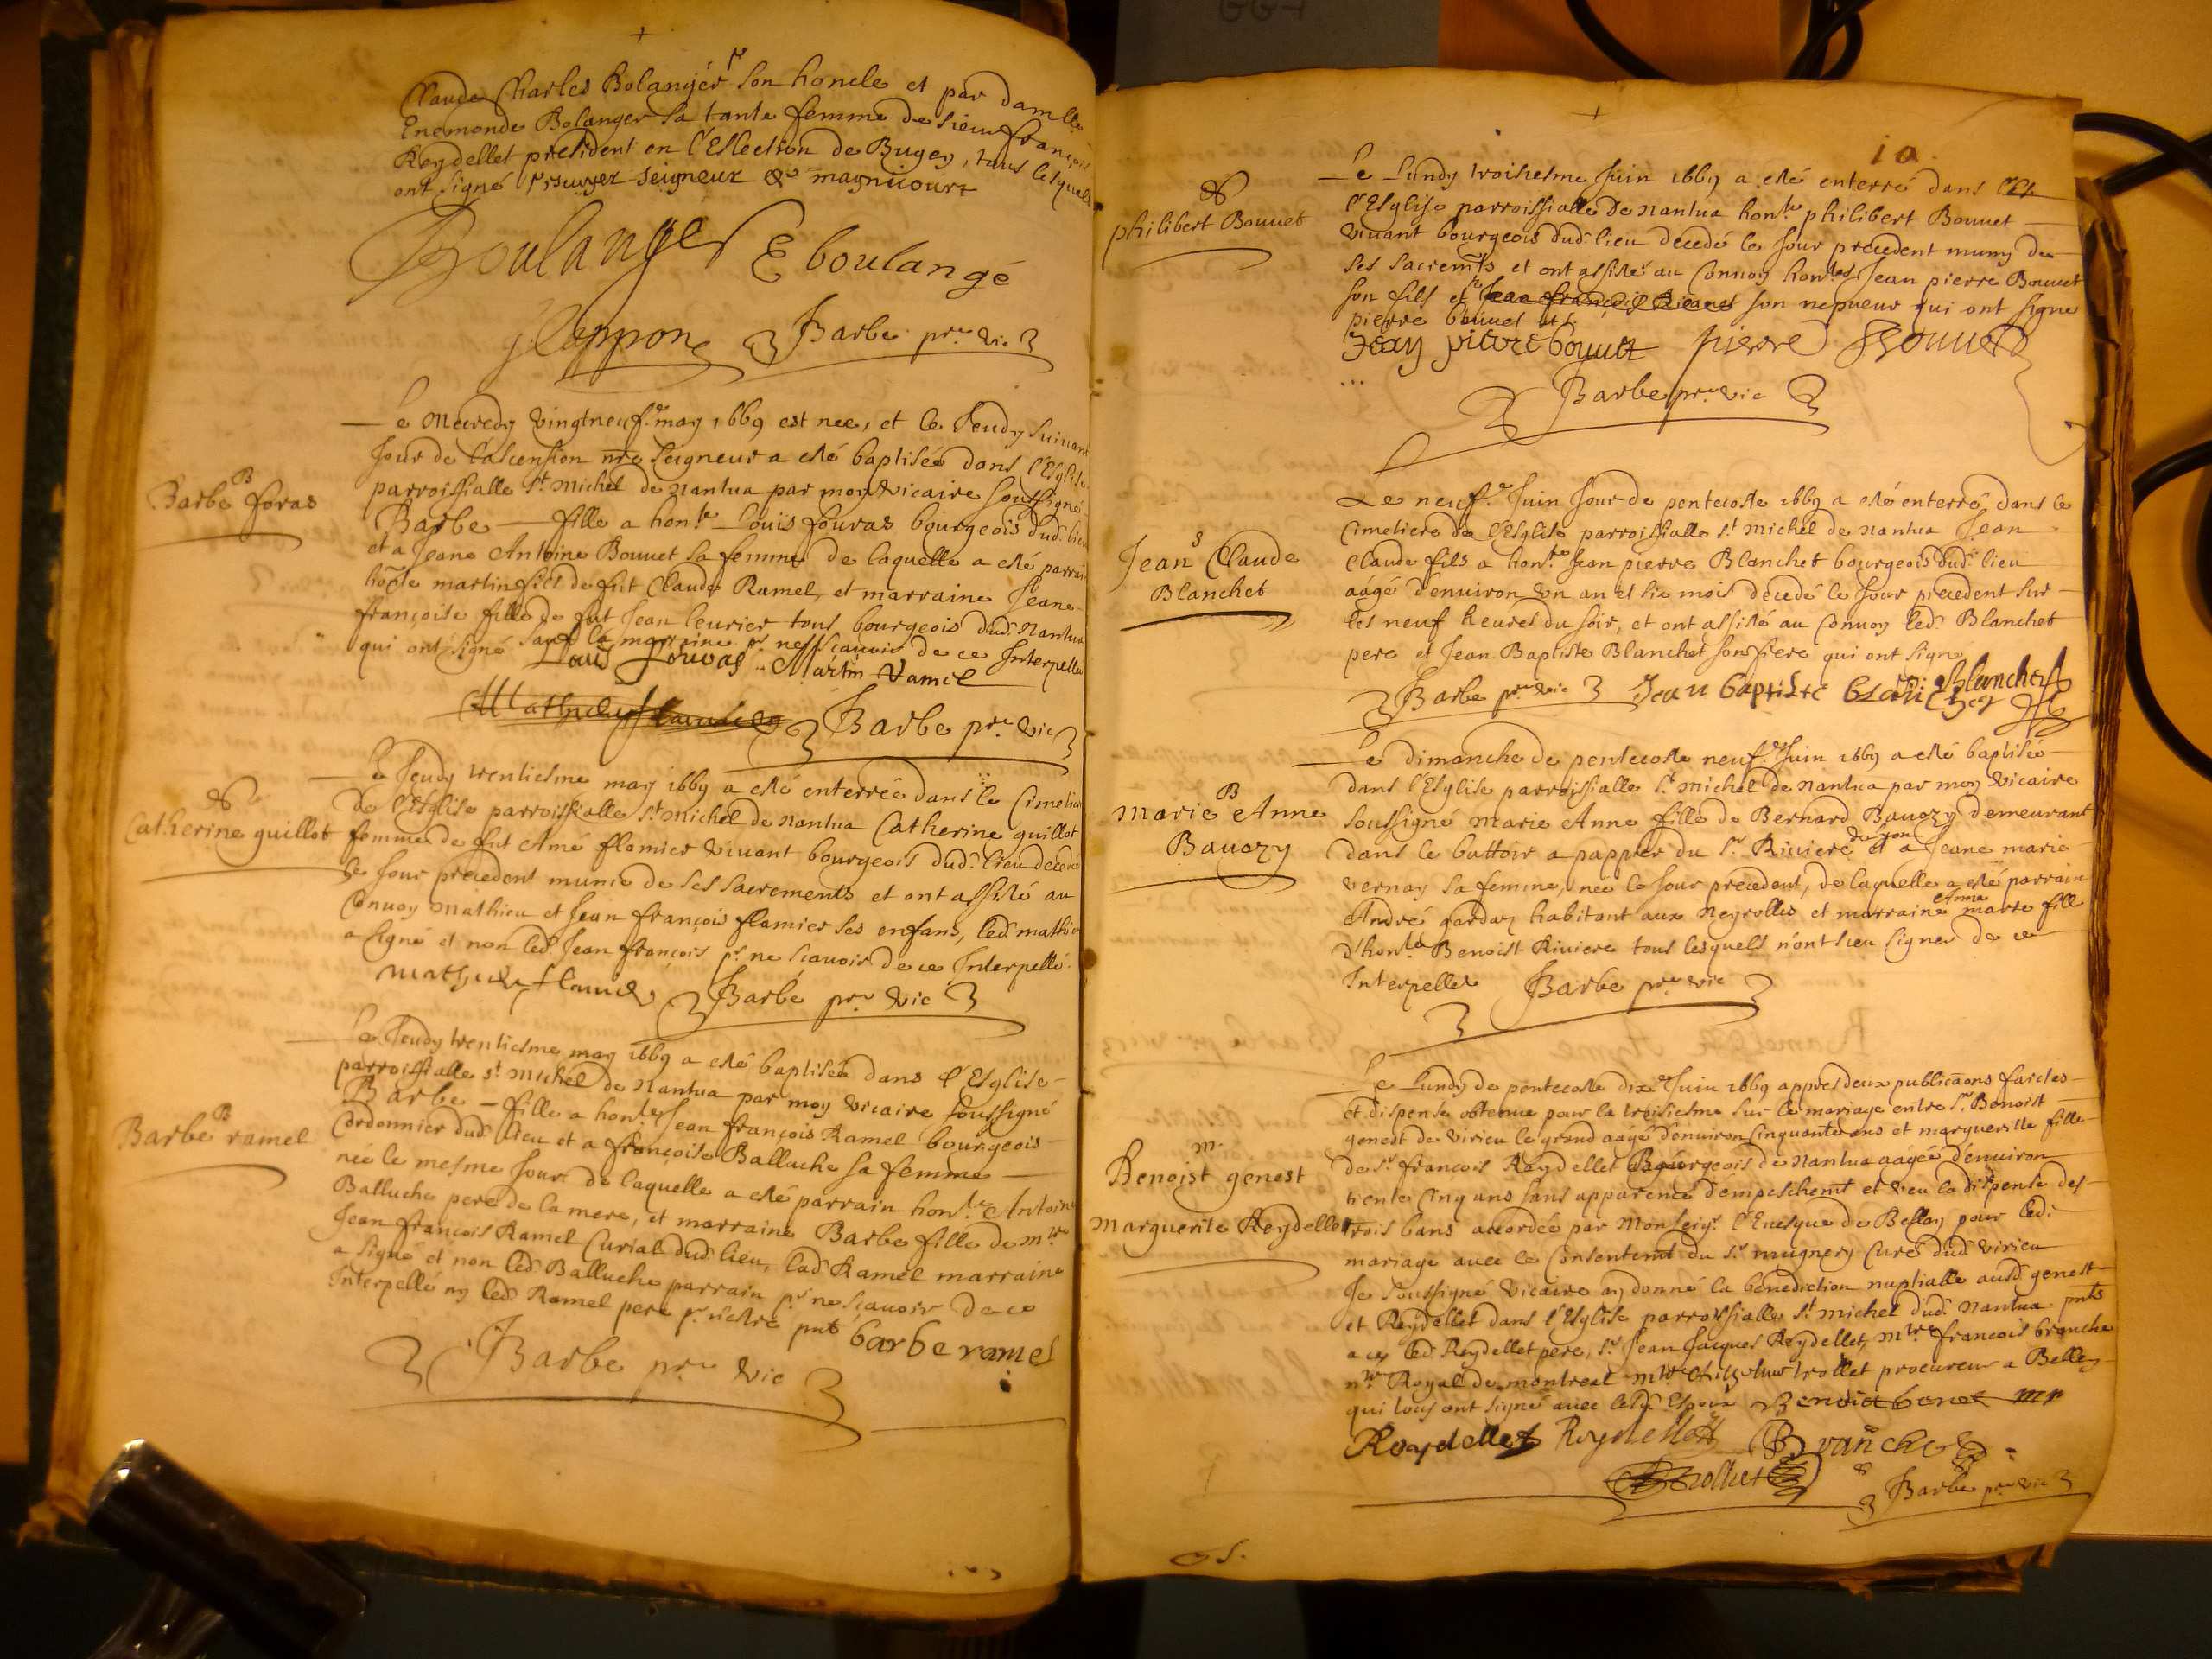 Claude Charles Bolangier son honcle et par damlle
Enemonde Bolanger sa tante femme de sieur françois
Reydellet president en l'Eslection de Bugey, tous lesquels
ont signé seigneur de magnicourt
Boulanger E boulangé
Barbe pre vic
Le Mecredy vingtneuf.e may 1669 est nee, et le Jeudy suivant
Jour de l'ascension nre seigneur a esté baptisée dans l'Esglise
parroissialle st michel de nantua par moy vicaire soussigné
Barbe foras
B
Barbe — fille a hon.le Louis fouras bourgeois dud. lieu
et a Jeane Antoine Bonnet sa femme de laquelle a esté parrain
hoñle martin fils de fut Claude Ramel, et marraine Jeane
françoise fille de fut Jean leurier tous bourgeois dud. nantua
qui ont signé sauf la marraine pr ne sçavoir de ce Interpellee
Louis Fouvas Martin Ramel
Barbe pre vic
Le Jeudy trentiesme may 1669 a esté enterrée dans le Cimetiere
de l'Esglise parroissialle st michel de nantua Catherine guillot
Catherine guillot
femme de fut Amé flamier vivant bourgeois dud. lieu decedée
le Jour precedent munie de ses sacrements et ont assisté au
Convoy mathieu et Jean françois flamier ses enfans, led. mathieu
a signé et non led. Jean françois pr ne scavoir de ce Interpellé.
Barbe pre vic
Le Jeudy trentiesme may 1669 a esté baptisée dans l'Esglise
parroissialle st michel de nantua par moy vicaire soussigné
B
Barbe ramel
Barbe — fille a hon.le Jean françois Ramel bourgeois
Cordonnier dud. lieu et a françoise Balluche sa femme
née le mesme Jour de laquelle a esté parrain hon.le Antoine
Balluche pere de la mere, et marraine Barbe fille de mre
Jean françois Ramel Curial dud. lieu, lad. Ramel marraine
a signé et non led. Balluche parrain pr ne scavoir de ce
Interpellé ny led. Ramel pere pr n'estre pnt barbe ramel
Barbe pre vic
10.
Le Lundy troisiesme Juin 1669 a esté enterré dans
philibert Bonnet
l'Esglise parroissialle de nantua hon.le philibert Bonnet
vivant bourgeois dud. lieu decedé le Jour precedent muny de
ses sacremts et ont assisté au Convoy hon.les Jean pierre Bonnet
son fils et son nepueur qui ont signe
pierre bonnet
Jean pierre bonnet pierre Bonnet
Barbe pre vic
Le neuf.e Juin Jour de pentecoste 1669 a esté enterré dans le
Cimetiere de l'Esglise parroissialle st michel de nantua Jean
Jean Claude
Blanchet
Claude fils a hon.le Jean pierre Blanchet bourgeois dud. lieu
aagé d'environ un an et six mois decedé le Jour precedent sur
les neuf heures du soir, et ont assisté au Convoy led. Blanchet
pere et Jean Baptiste Blanchet son frere qui ont signe
Blanchet
Barbe pre vic Jean baptiste
Le dimanche de pentecoste neuf.e Juin 1669 a esté baptisée
dans l'Esglise parroissialle st michel de nantua par moy vicaire
B
marie Anne
Bavozy
soussigné marie Anne fille de Bernard Bavozy demeurant
dans le battoir a pappier du sr Riviere de lyon et a Jeane marie
vernay sa femme, nee le Jour precedent, de laquelle a esté parrain
André gardaz habitant aux neyrolles et marraine Anne marte fille
d'hon.le Benoist Riviere tous lesquels n'ont sceu signer de ce
Interpelles Barbe pre vic
Le Lundy de pentecoste dix.e Juin 1669 appres deux publicãons faictes
et dispense obtenue pour la troisiesme sur le mariage entre sr Benoist
m.
Benoist genest
marguerite Reydellet
genest de virieu le grand aagé d'environ Cinquante ans et marguerite fille
de sr francois Reydellet Bourgeois de nantua aagée d'environ
trente cinq ans sans apparence d'empeschemt et veu la dispense des
trois bans accordée par Monseigr l'Evesque de Belley pour led.
mariage avec le Consentemt du sr mugnery Curé dud. virieu
Je soussigné vicaire ay donné la benediction nuptialle ausd. genest
et Reydellet dans l'Esglise parroissialle st michel dud. nantua pnts
a ce led. Reydellet pere, sr Jean Jacques Reydellet, mtre francois branche
nre Royal de montreal mtre trollet procureur a Belley
qui tous ont signé avec lesd. Espoux
Reydellet Reydellet Branche
Trollet
Barbe pre vic